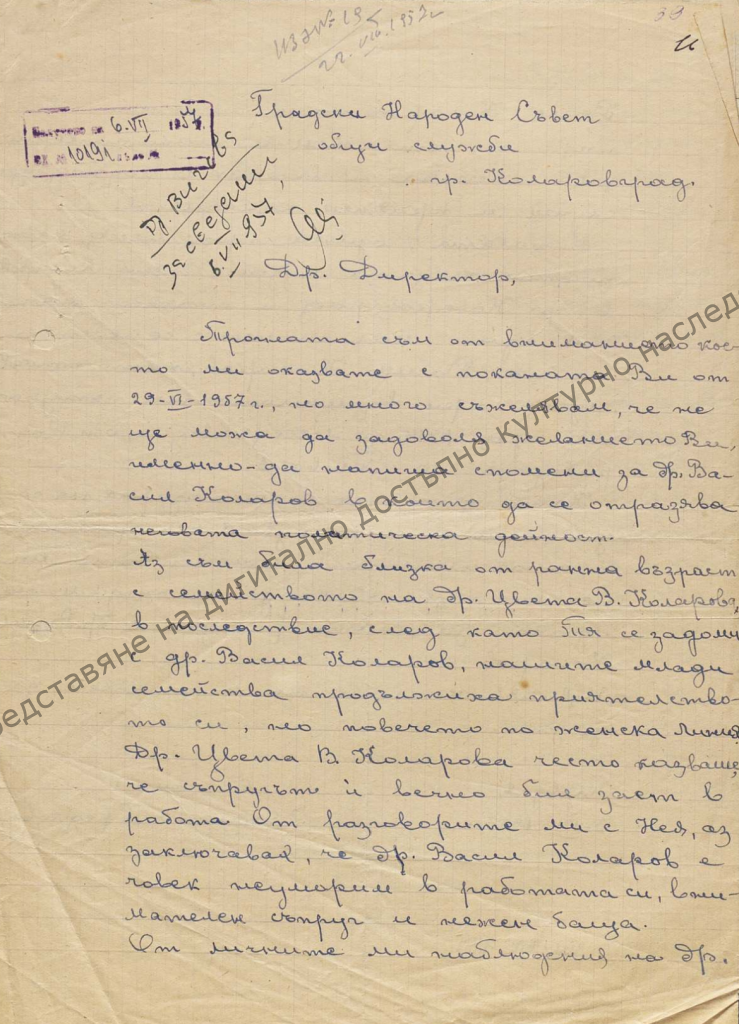 ИЗХ № 19
22.VIII.1957 г
Получено на 6.VII 1957 г.
ВХ № 10191
др. Вичева
за сведение
6.VII 957
Градски Народен Съвет
общи служби
гр. Коларовград.
Др. Директор,
Трогната съм от вниманието кое-
то ми оказвате с поканата Ви от
29-VI-1957 г., но много съжелявам, че не
ще можа да задоволя желанието Ви,
именно - да напиша спомени за др. Ва-
сил Коларов в които да се отразява
неговата политическа дейност.
Аз съм била близка от ранна възраст
с семейството на др. Цвета В. Коларова,
в последствие, след като Тя се задоми
с др. Васил Коларов, нашите млади
семейства продължиха приятелство-
то си, но повечето по женска линия.
Др. Цвета В. Коларова често казваше,
че съпругът ѝ вечно бил зает в
работа От разговорите ми с Нея, аз
заключавах, че др. Васил Коларов е
човек неуморим в работата си, вни-
мателен съпруг и нежен баща.
От личните ми наблюдения на др.
представяне на дигитално достъпно културно наслед